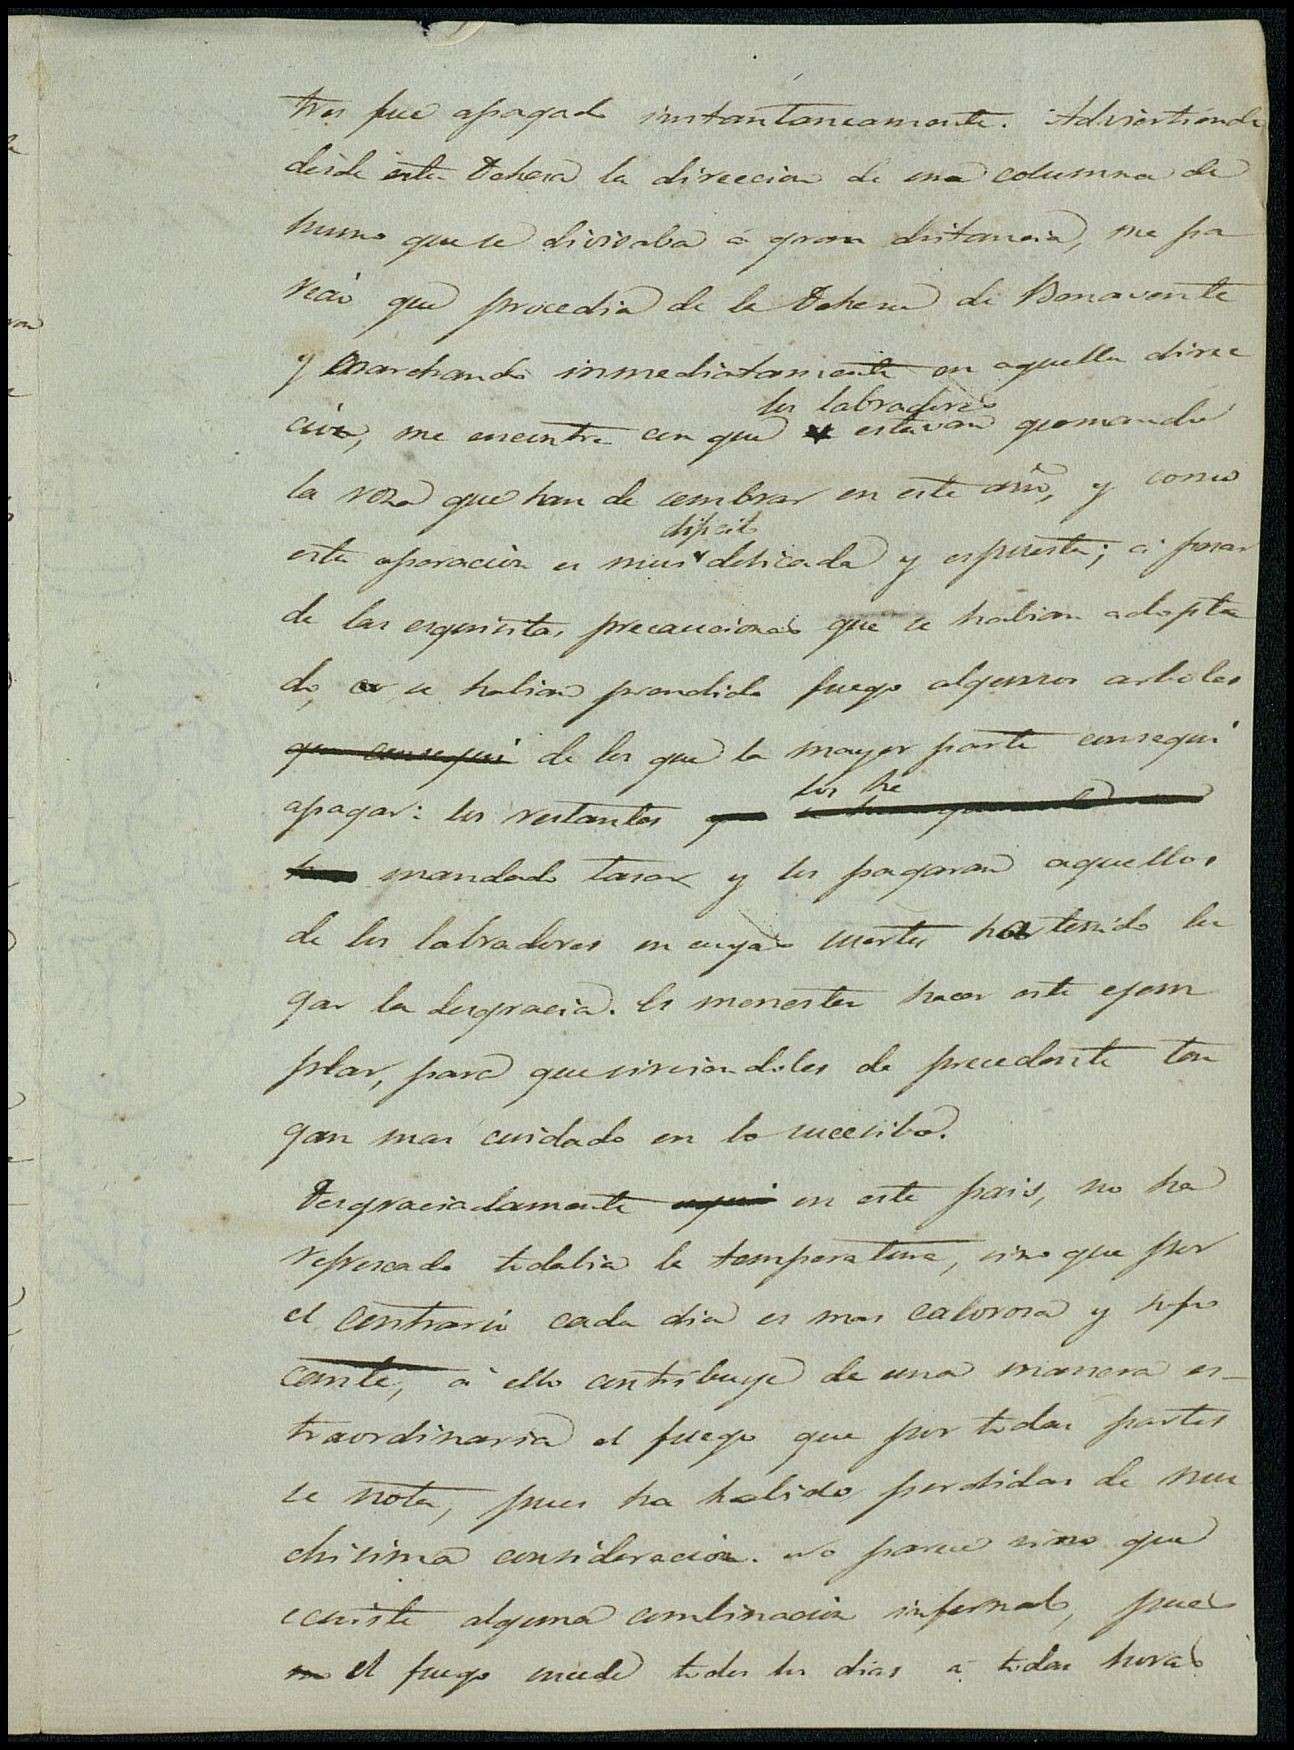 tros fue apagado instantaneamente. Advirtiendo
desde esta Dehesa la direccion de una columna de
humo que se divisaba á gran distancia, me pa
reció que procedia de la Dehesa de Benavente
y marchando inmediatamente en aquella direc
los labradores
ción, me encontre con que estavan quemando
la roza que han de sembrar en este año, y como
dificil
esta operación es muy delicada y espuesta; á pesar
de las esquisitas precauciones que se habian adopta
do, se habian prendido fuego algunos arboles
que consegui de los que la mayor parte consegui
los he
apagar: los restantes
mandado tasar y los pagaran aquellos
de los labradores en cuyas suertes ha tenido lu
gar la desgracia. Es menester hacer este ejem
plar, para que sirviendoles de precedente ten
gan mas cuidado en lo sucesibo.
Desgraciadamente aqui en este pais, no ha
refrescado todabia la temperatura, sino que por
el contrario cada dia es mas calorosa y sofo
cante, á ello contribuye de una manera es-
traordinaria el fuego que por todas partes
se nota, pues ha habido perdidas de mu
chisima consideracion. No parece sino que
ecsiste alguna combinacion infernal, pues
el fuego sucede todos los dias á todas horas